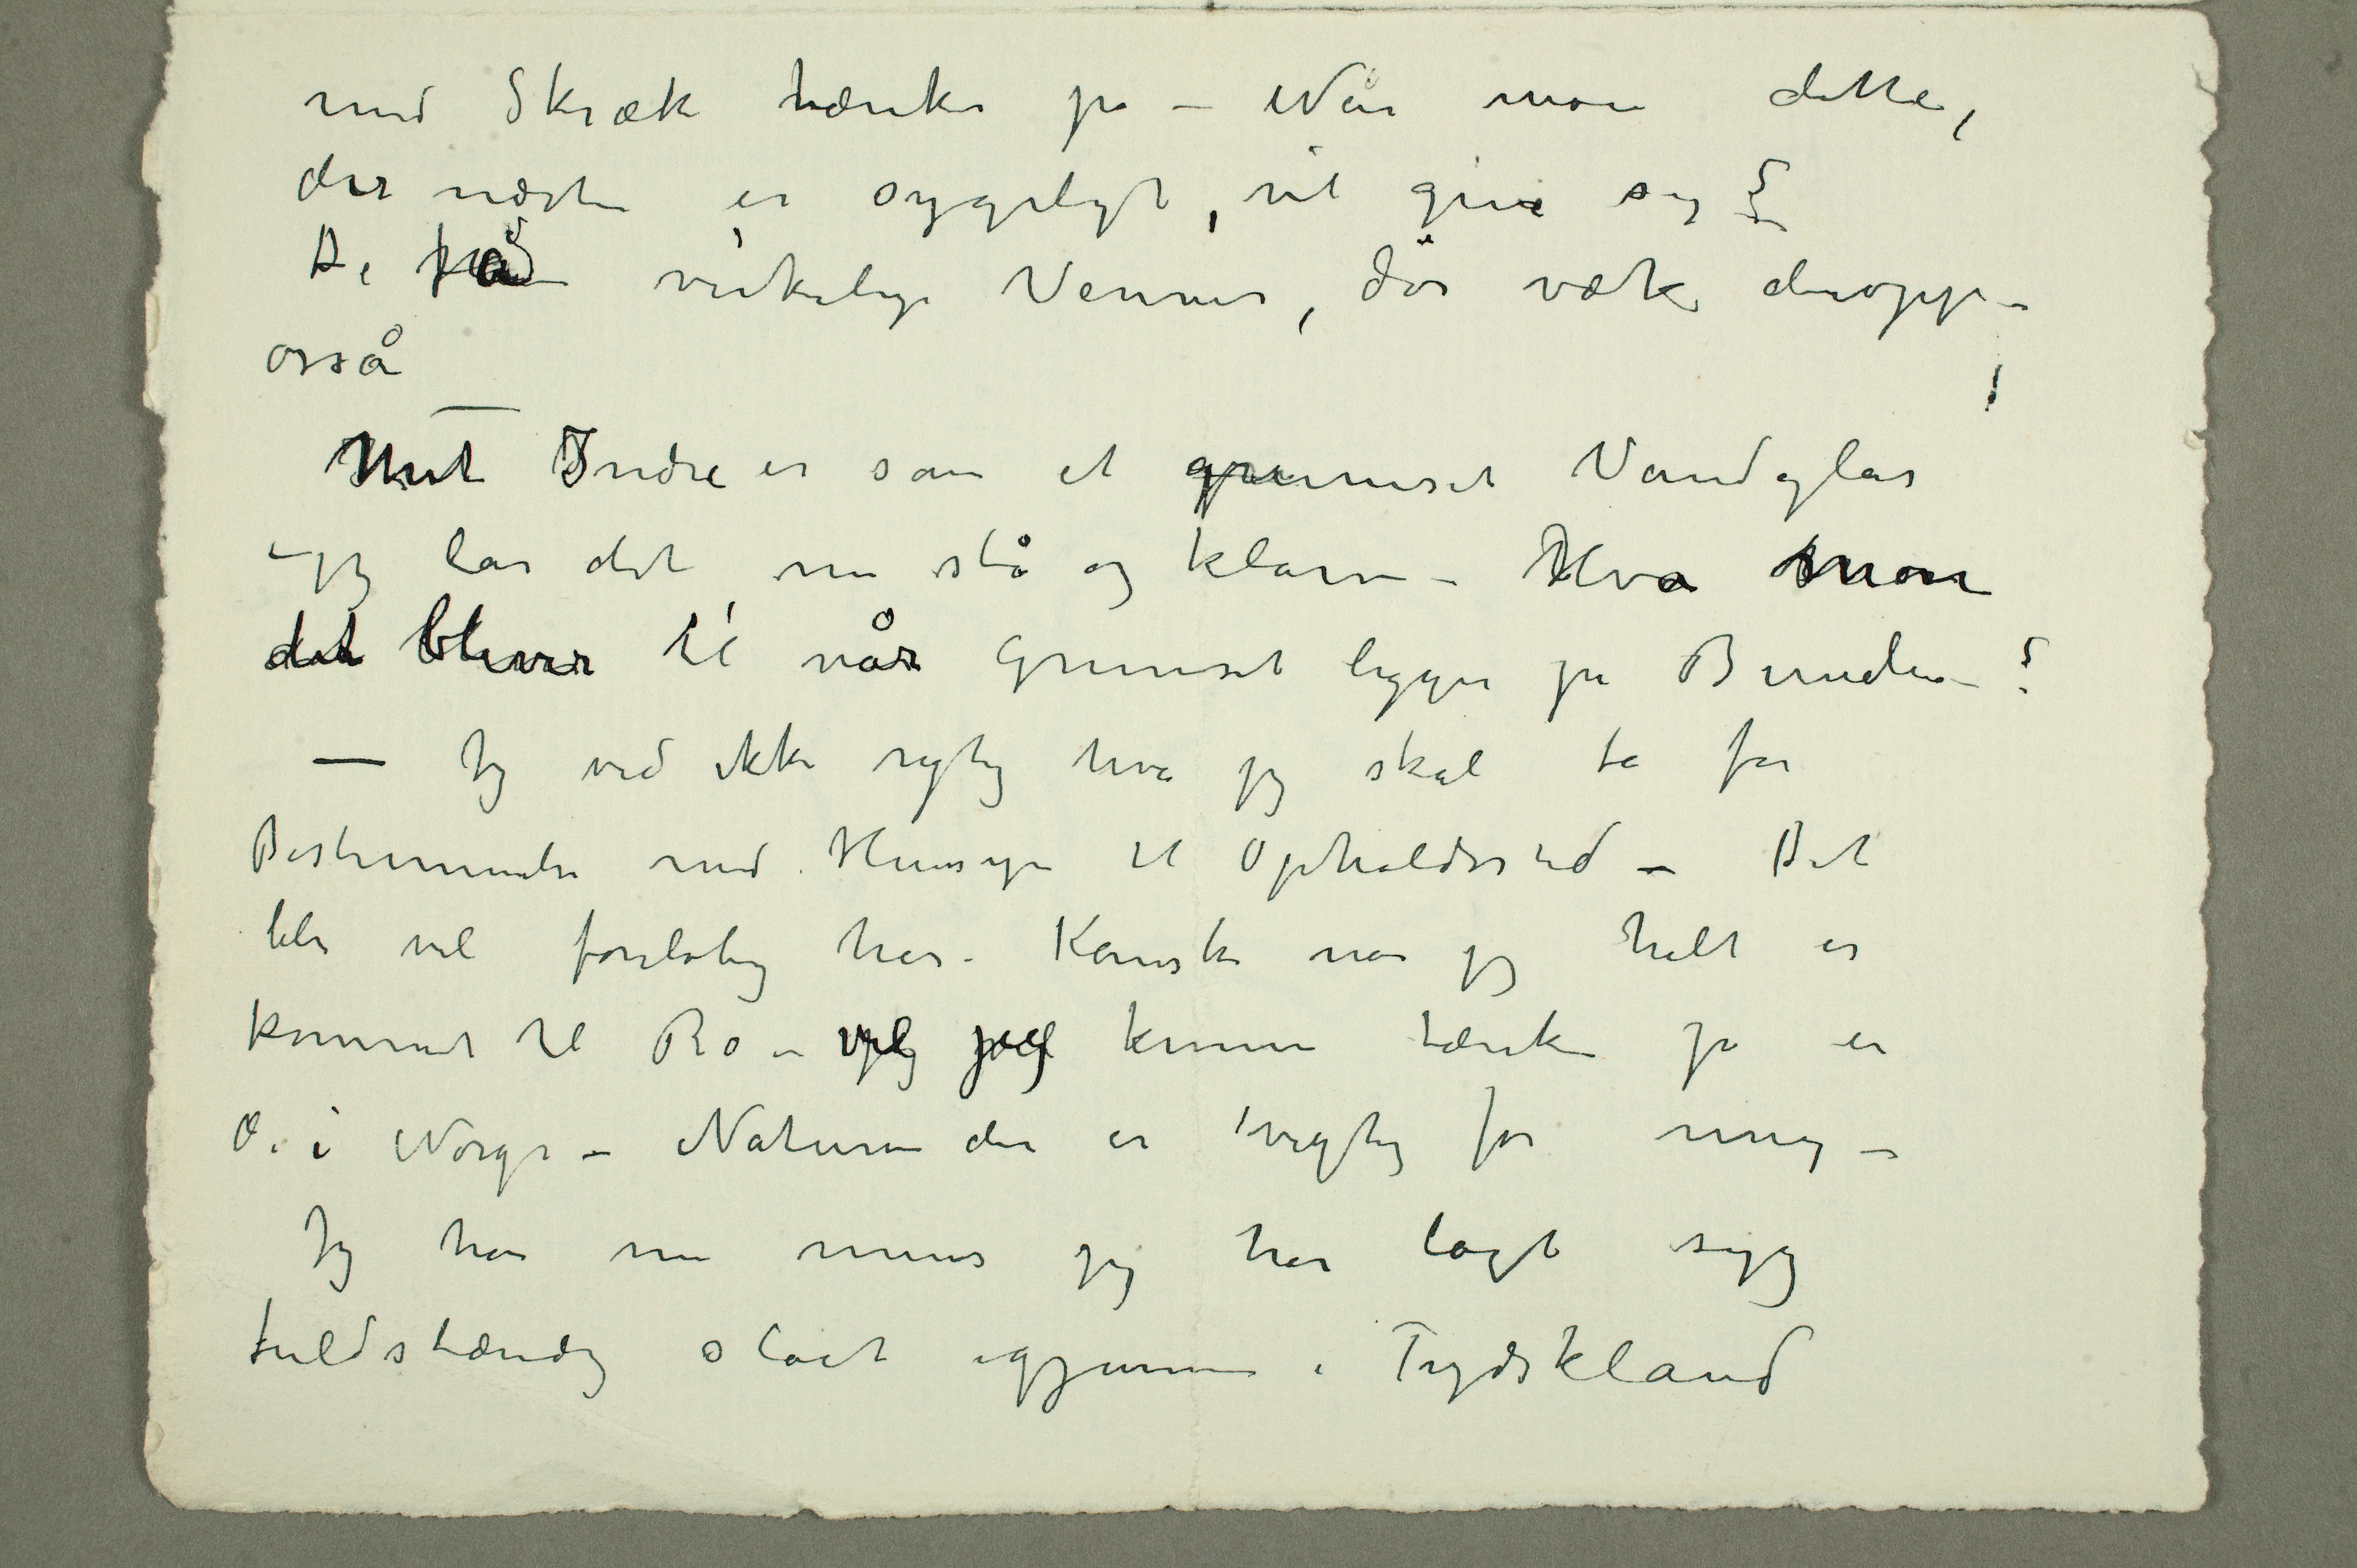 med Skræk tænker på – Når mon dette,
der næsten er sygeligt, vil give sig?
De få virkelige Venner, dør væk deroppe
osså !
–
Mit Indre er som et grumset Vandglas
– jeg lar det nu stå og klarne – Hva mon
det bliver til når Grumset ligger på Bunden – ?
— Jeg ved ikke rigtig hva jeg skal ta for
Bestemmelse med Hensyn til Opholdssted – Det
blir vel foreløbig her. Kanske når jeg helt er
kommet til Ro – jeg kunne tænke på en
Ø i Norge – Naturen der er vigtig for mig –
Jeg har nu mens jeg har lagt syg
fuldstændig slået igjennem i Tydskland